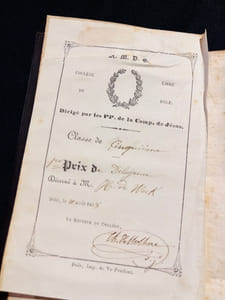 A. M. D. G.
COLLÉGE LIBRE
DE DOLE,
Dirigé par les PP. de la Comp. de Jésus.
Classe de Cinquième
Prix de Diligence
Décerné à M. H. de
Dole, le août 18
LE RECTEUR DU COLLÉGE,
Dole, imp. de Ve Prudont.